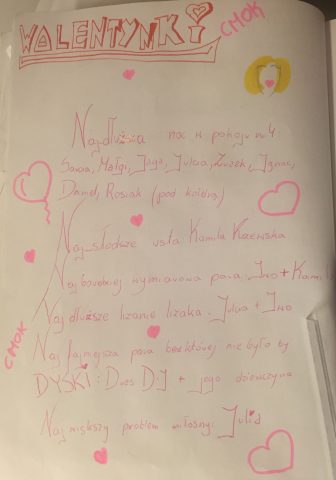 WALENTYNKI
CMOK
Najdłuższa noc w pokoju nr 4
Sara, Małgi, Jaga, Julia, Zuzek, Ignac,
Dawid, Rosiak (pod kołdrą)
Najsłodsze usta Kamila
Naj wymiarowa para: Ino + Kamila
Najdłuższe lizanie lizaka: Julia + Ino
Najfajniejsza para bez której nie było by
DYSKI: D.J + jego dziewczyna
Największy problem miłosny: Julia
CMOK